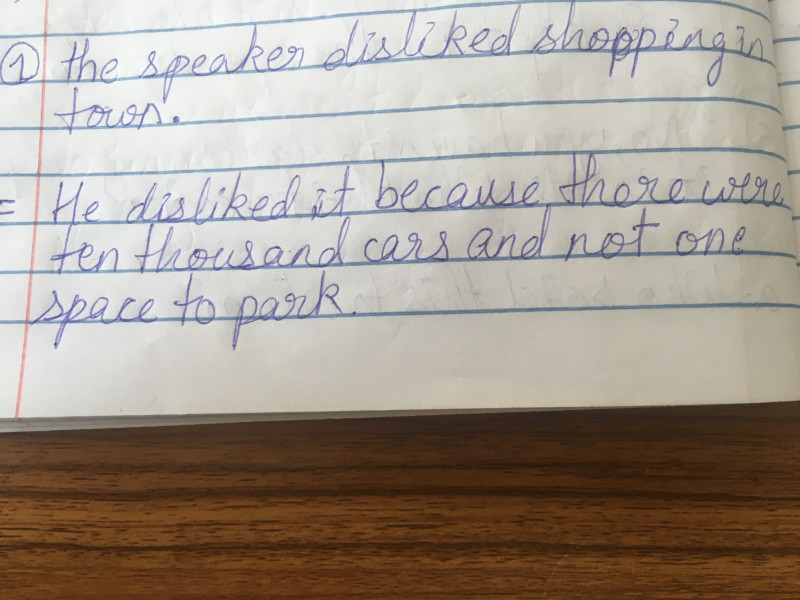 ① the speaker disliked shopping in
town.
= He disliked it because there were
ten thousand cars and not one
space to park.